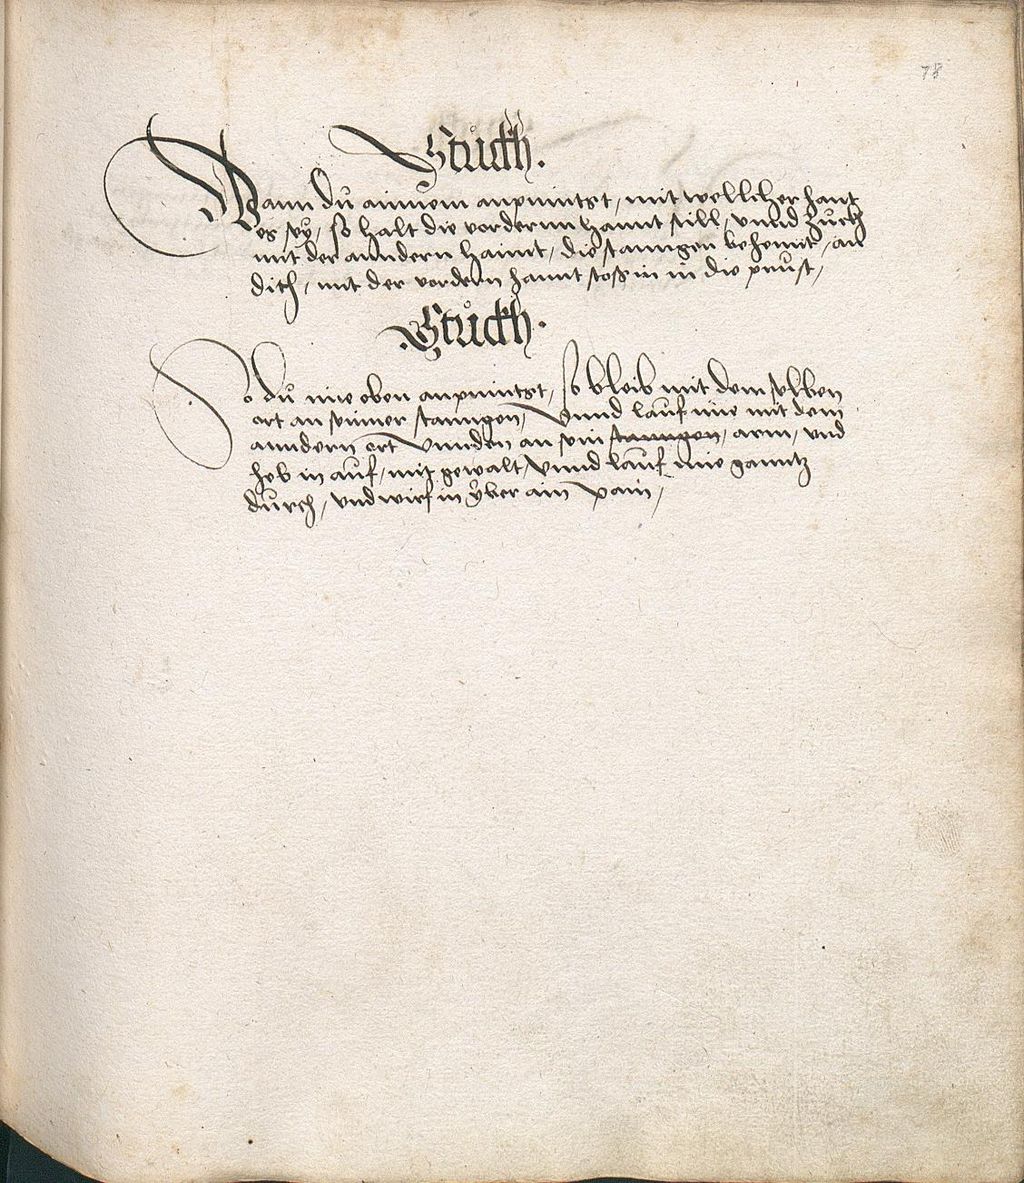 78
Stückh.
Wann dü ainuem anpinntst, mit wellicher hant
es sey, so halt die vordernn hannt still, vnnd zuckh
mit der anndern hannt, die stanngen behennt, an
dich, mit der vordern hannt stoss in in die prust,
Stückh.
So dü nie eben anpinntst, so bleib mit dem selben
ort an seiner stanngen, Vnnd lauf nie mit dem
anndern ort vnnden an sein stanngen, arm, vnd
heb in auf, mit gewalt, Vnnd lauf nie ganntz
durch, vnd wirf in yber ain pain,